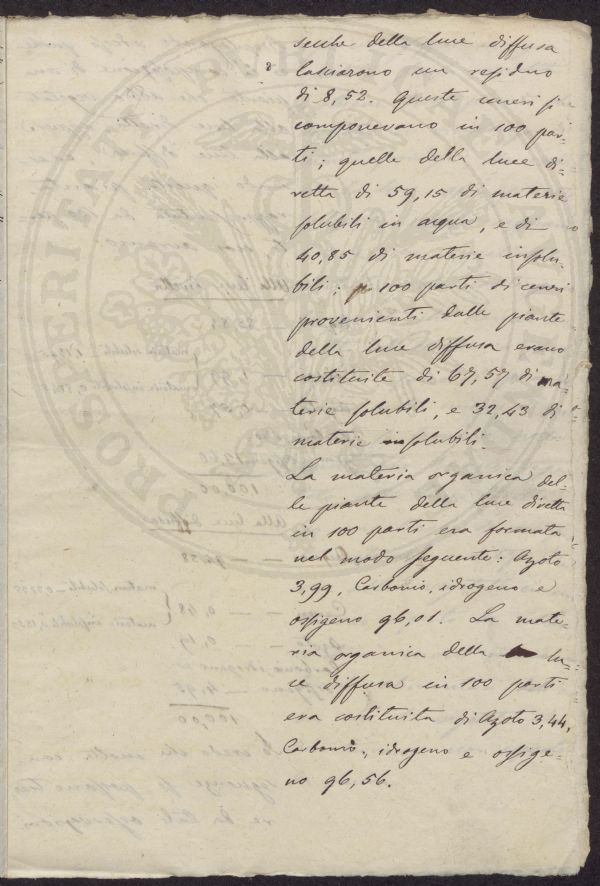 secche della luce diffusa
lasciarono un residuo
di 8,52. Queste ceneri si
componevano in 100 par-
ti; quelle della luce di-
retta di 59,15 di materie
solubili in acqua, e di
40,85 di materie insolu-
bili; 100 parti di ceneri
provenienti dalle piante
della luce diffusa erano
costituite di 67,57 di ma-
terie solubili, e 32,43 di
materie insolubili.
La materia organica del-
le piante della luce diretta
in 100 parti era formata
nel modo seguente: Azoto
3,99, Carbonio, idrogeno e
ossigeno 96,01. La mate-
ria organica della lu-
ce diffusa in 100 parti
era costituita di Azoto 3,44,
Carbonio, idrogeno e ossige-
no 96,56.